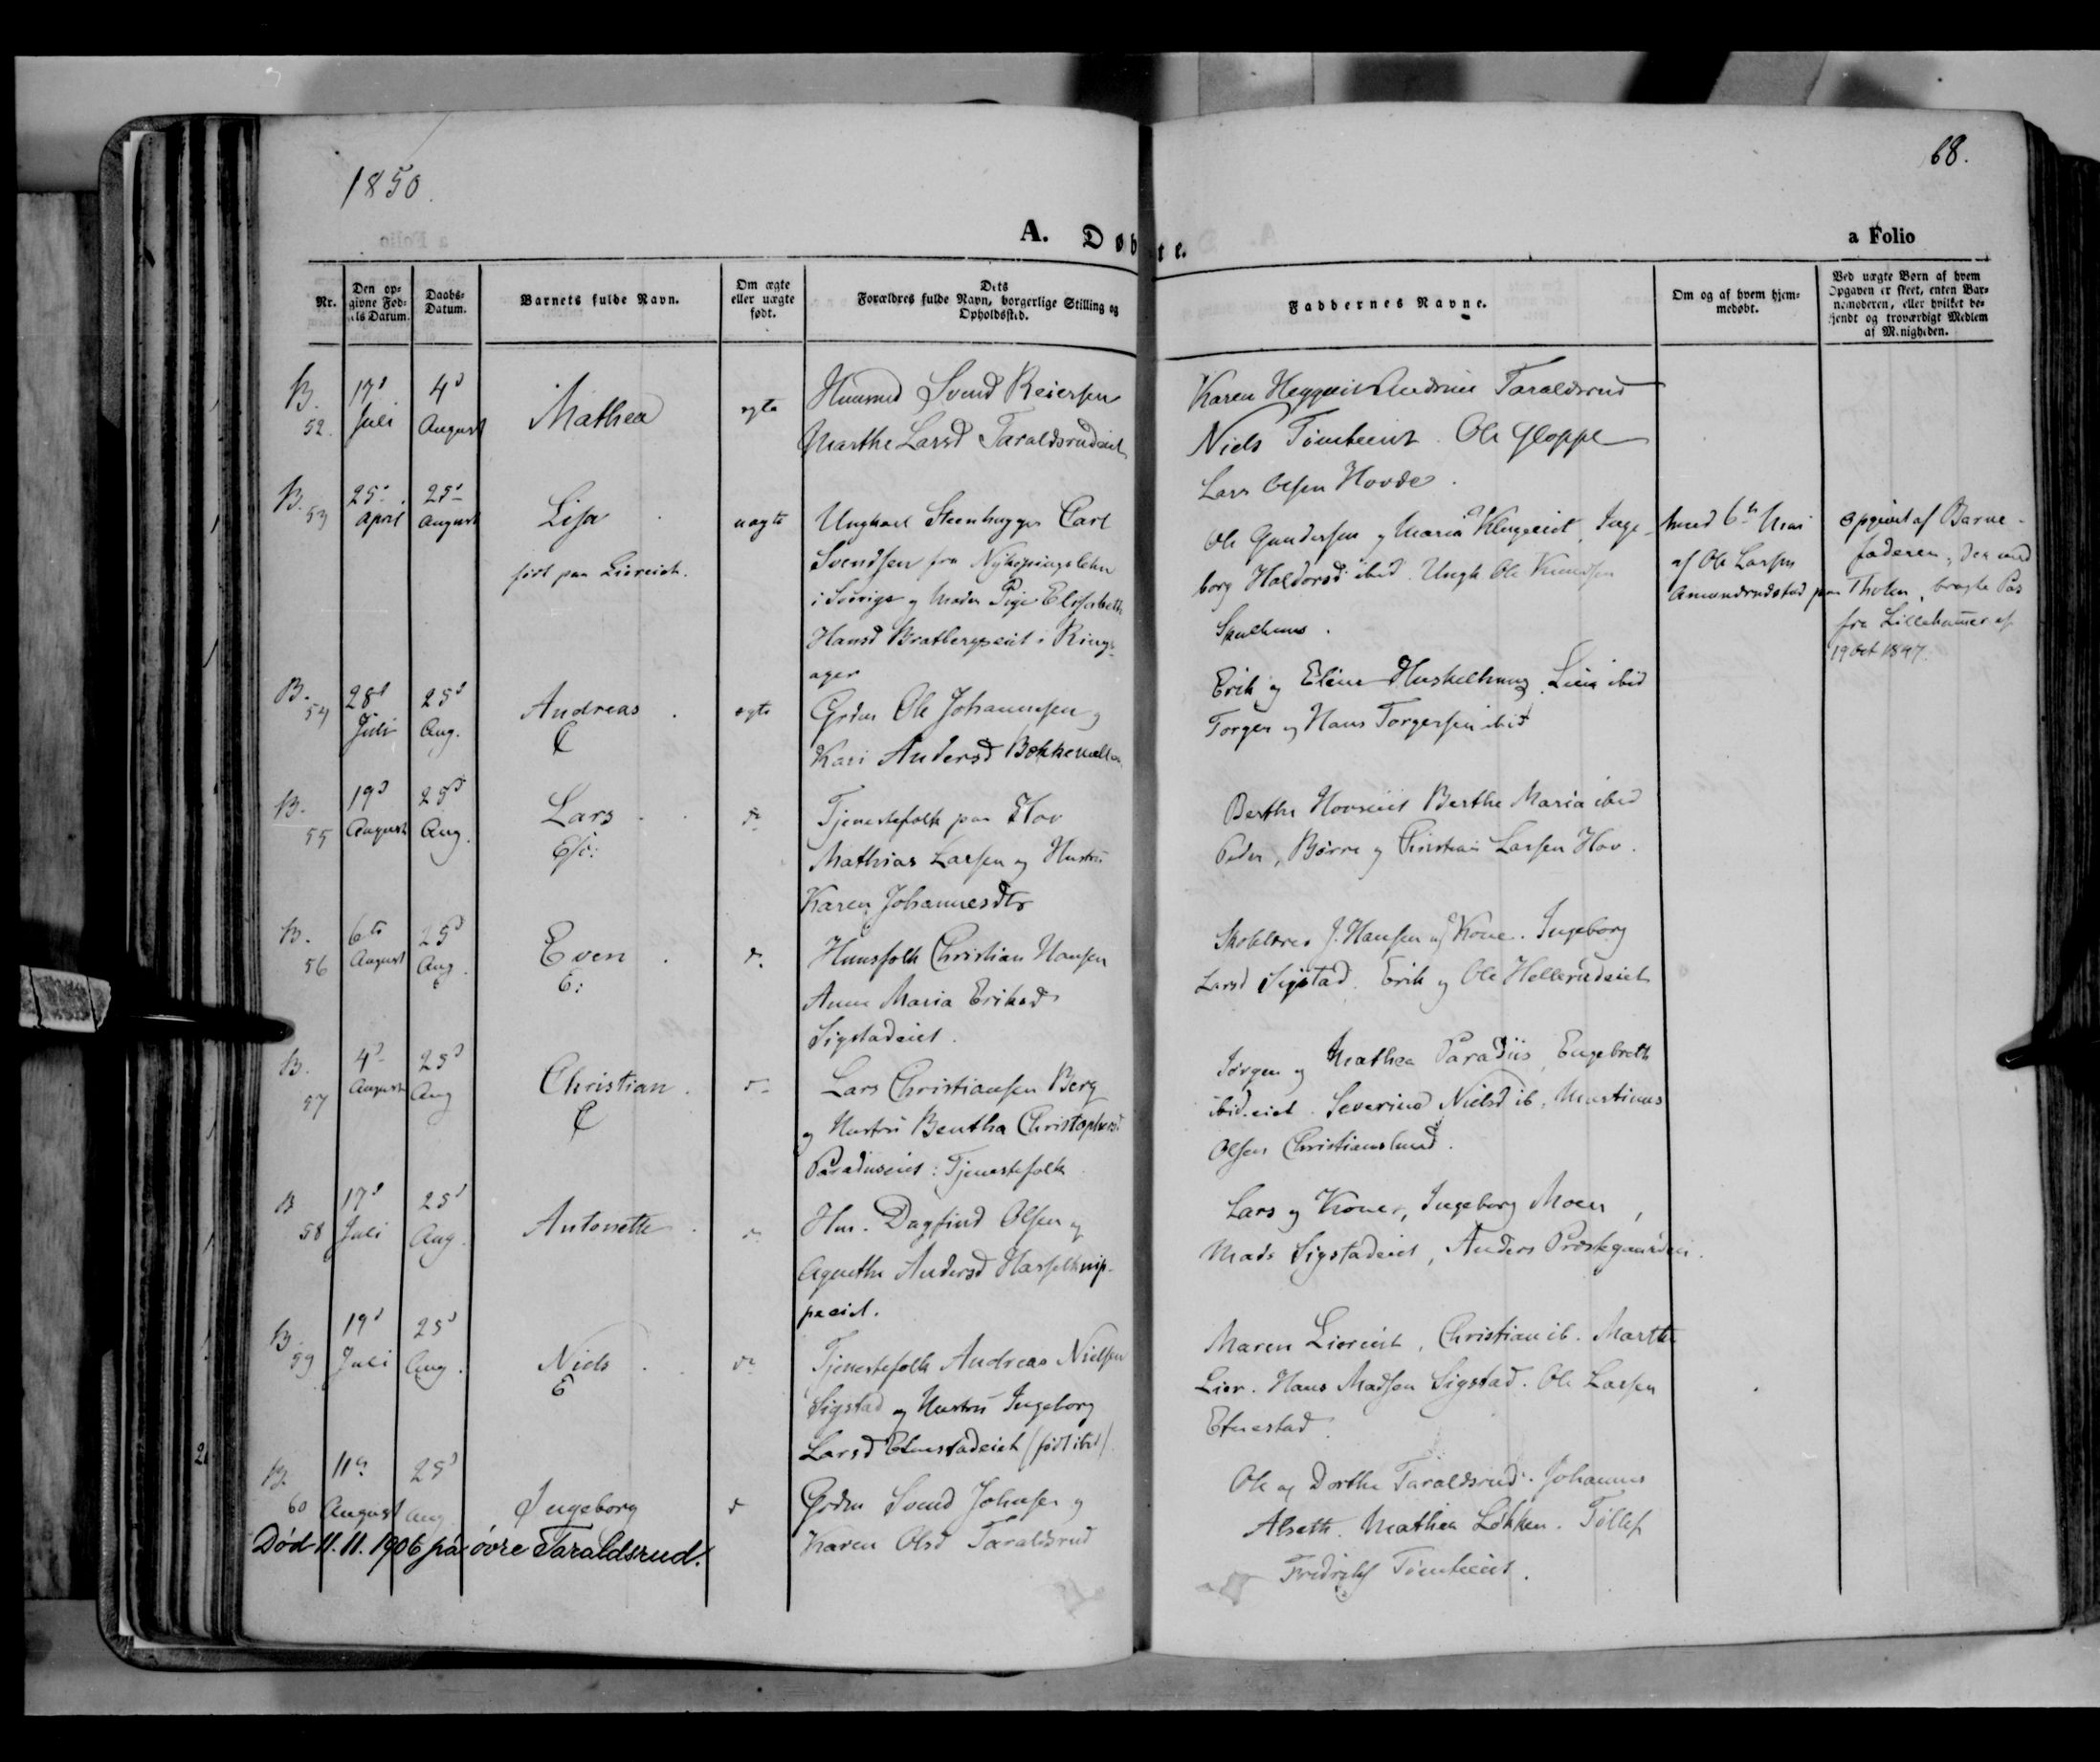 1850.
68.
A. Døbte.
a Folio
Nr.
Den op-
givne Fød-
sels Datum.
Daabs-
Datum.
Barnets fulde Navn.
Om ægte
eller uægte
født.
Dets
Forældres fulde Navn, borgerlige Stilling og
Opholdssted.
Faddernes Navne.
Om og af hvem hjem-
medøbt.
Ved uægte Børn af hvem
Opgaven er skeet, enten Bar-
nemoderen, eller hvilket be-
kjendt og troværdigt Medlem
af Menigheden.
B. 17d 4d
52. Juli August Mathea ægte
Huusmd Svend Reiersen
Marthe Larsd Taraldsrudeiet
Karen Heggeiet Andrine Taraldsrud
Niels Tømteeiet. Ole Gloppe
Lars Olsen Hovde.
B. 25d 25d
53 April August Lisa uægte
født paa Liereiet.
Ungkarl Steenhugger Carl
Svendsen fra Nykøpingslehn
i Sverige og Moder Pige Elisabeth
Hansd Bratbergseiet i Rings-
ager
Ole Gundersen og Maria Klungeiet, Inge-
borg Haldorsd ibid. Ungk Ole Knudsen
af Ole Larsen
Amundrudstad paa
opgivet af Barne-
faderen, der med
Tholen, bragte Pas
fra Lillehammer af
19 Oct 1847.
B. 28d 25d
54 Juli Aug. Andreas ægte
Grdm Ole Johannesen og
Kari Andersd
Erik og Eline Huskelhuug. Lisa ibid
Torger og Hans Torgersen ibid
B. 19d 25d
55 August Aug. Lars d
Tjenestefolk paa Hov
Mathias Larsen og Hustru
Karen Johannesdtr
Berthe Hovseiet Berthe Maria ibid
Peder, Børre og Christian Larsen Hov.
B. 6te 25d
56 August Aug. Even d.
E:
Huusfolk Christian Hansen
Anne Maria Eriksd
Sigstadeiet.
Skolelærer J. Hansen og Kone. Ingeborg
Larsd Sigstad. Erik og Ole Hellerudeiet
B. 4d 25d
57 August Aug Christian. d
Lars Christiansen Berg
og Hustru Bentha Christophersd
Paradiseiet: Tjenestefolk
Jørgen og Mathea Paradiis, Engebreth
ibid. eiet. Severine Nielsd ib, Martinus
Olsen Christianslund.
B 17d 25d
58 Juli Aug. Antonette d
Hm. Dagfind Olsen og
Agnethe Andersd Hasselknip-
peeiet.
Lars og Kone, Ingeborg Moen,
Mads Sigstadeiet, Anders Præstegaarden.
B. 19d 25d
59 Juli Aug. Niels d
E
Tjenestefolk Andreas Nielsen
Sigstad og Hustru Ingeborg
Larsd Elnestadeiet (født ibid)
Maren Liereiet, Christian ib. Marthe
Lier. Hans Madsen Sigstad. Ole Larsen
Elnestad
B. 11te 25d
60 August Aug Ingeborg d
Grdm Svend Johnsen og
Karen Olsd Taraldsrud
Ole og Dorthe Taraldsrud. Johannes
Alseth. Mathea Løkken. Tollef
Fredriks Tømteeiet.
Død 11.11.1906 på øvre Taraldsrud.